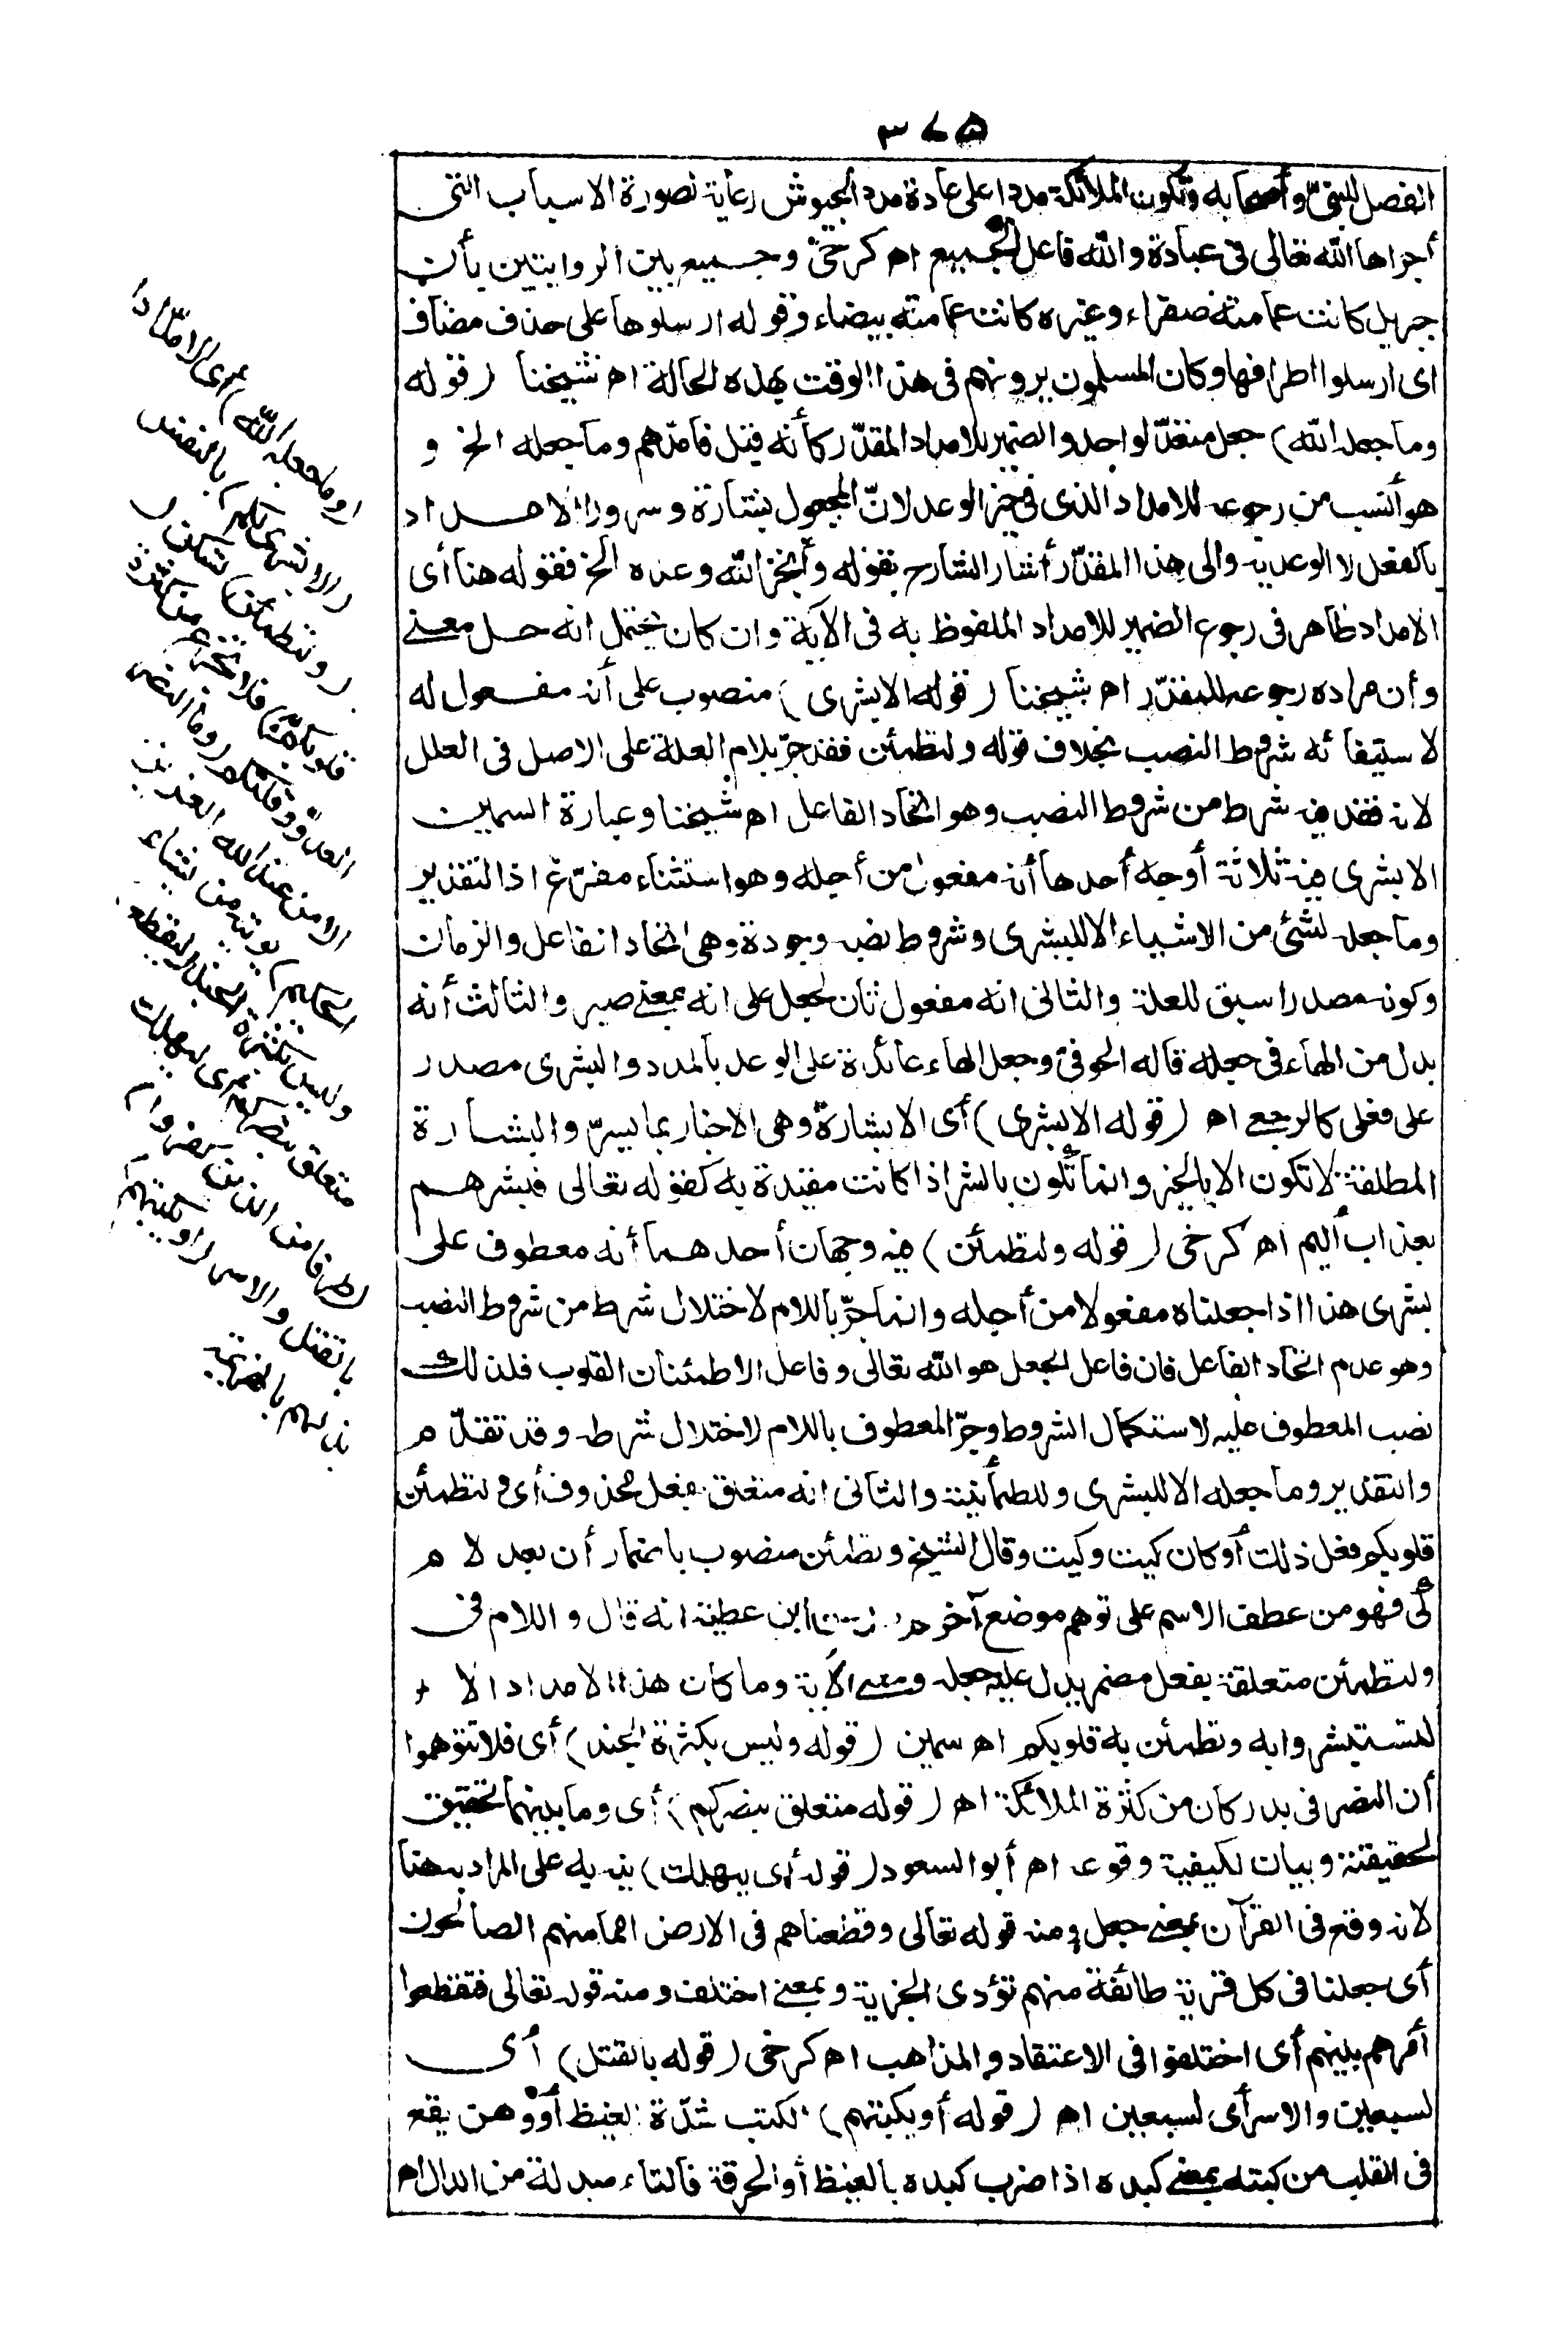 ٣٧٥
الفضل للنبىّ وأصحابه وتكون الملائكة مددا على عادة مدد الجيوش رعاية لصورة الاسباب التى
أجراها الله تعالى فى عباده والله فاعل الجميع اه كرخىّ وجميع بين الروايتين بأن
جبريل كانت عمامته صفراء وغيره كانت عمامته بيضاء وقوله ارسلوها على حذف مضاف
اى ارسلوا اطرافها وكان المسلمون يرونهم فى هذا الوقت بهذه الحالة اه شيخنا (قوله
وما جعله الله) جعل متعدّ لواحد والضمير للامداد المقدّر كأنه قيل فأمدّهم وما جعله الخ و
هو أنسب من رجوعه للامداد الذى فى حيز الوعد لانّ المجعول بشارة وسرورا الامداد
بالفعل لا الوعد به والى هذا المقدّر أشار الشارح بقوله وأنجز الله وعده الخ فقوله هنا أى
الامداد ظاهر فى رجوع الضمير للامداد الملفوظ به فى الآية وان كان يحتمل انه حل معنے
وأن مراده رجوعه للمقدّر اه شيخنا (قوله الا بشرى) منصوب على أنه مفعول له
لاستيفائه شروط النصب بخلاف قوله ولتطمئن فقد جرّ بلام العلة على الاصل فى العلل
لانه فقد فيه شرط من شروط النصب وهو اتحاد الفاعل اه شيخنا وعبارة السمين
الا بشرى فيه ثلاثة أوجه أحدها أنه مفعول من أجله وهو استثناء مفرّغ اذ التقدير
وما جعله لشئ من الاشياء الا للبشرى وشروط نصبه وجودة وهى اتحاد الفاعل والزمان
وكونه مصدرا سيق للعلة والثانى انه مفعول ثان لجعل على انه بمعنے صير والثالث أنه
بدل من الهاء فى جعله قاله الحوفىّ وجعل الهاء عائدة على الوعد بالمدد والبشرى مصدر
على فعلى كالرجعى اه (قوله الا بشرى) أى الا بشارة وهى الاخبار بما يسرّ والبشارة
المطلقة لا تكون الا بالخير وانما تكون بالشر اذا كانت مقيدة به كقوله تعالى فبشرهم
بعذاب أليم اه كرخى (قوله ولتطمئن) فيه وجهان أحدهما أنه معطوف على
بشرى هذا اذا جعلناه مفعولا من أجله وانما جرّ باللام لاختلال شرط من شروط النصب
وهو عدم اتحاد الفاعل فان فاعل الجعل هو الله تعالى وفاعل الاطمئنان القلوب فلذلك
نصب المعطوف عليه لاستكمال الشروط وجرّ المعطوف باللام لاختلال شرطه وقد تقدّم
والتقدير وما جعله الا للبشرى وللطمأنينة والثانى انه متعلق بفعل محذوف أى ولتطمئن
قلوبكم فعل ذلك أو كان كيت وكيت وقال الشيخ وتطمئن منصوب باضمار أن بعد لام
كى فهو من عطف الاسم على توهم موضع آخر ابن عطية انه قال واللام فى
ولتطمئن متعلقة بفعل مضمر يدل عليه جعله ومعنے الآية وما كان هذا الامداد الا
لتستبشروا به وتطمئن به قلوبكم اه سمين (قوله وليس بكثرة الجند) أى فلا تتوهموا
أن النصر فى بدر كان من كثرة الملائكة اه (قوله متعلق بنصركم) أى وما بينهما تحقيق
لحقيقته وبيان لكيفية وقوعه اه أبو السعود (قوله أى يهلك) نبه به على المراد به هنا
لانه وقع فى القرآن بمعنے جعل ومنه قوله تعالى وقطعناهم فى الارض امما منهم الصالحون
أى جعلنا فى كل قرية طائفة منهم تؤدى الجزية وبمعنے اختلف ومنه قوله تعالى فتقطعوا
أمرهم بينهم أى اختلفوا فى الاعتقاد والمذاهب اه كرخى (قوله بالقتل) أى
لسبعين والاسر أى لسبعين اه (قوله أو يكبتهم) الكبت شدّة الغيظ أو وهن يقع
فى القلب من كبته بمعنے كبده اذا ضرب كبده بالغيظ أو الحرقة فالتاء مبدلة من الدال اه
(وما جعله الله) أى الامداد
(الا بشرى) لكم بالنصر
(ولتطمئن) لتسكن
قلوبكم به فلا تجزع من كثرة
العدوّ وقلتكم (وما النصر
الا من عند الله العزيز
الحكيم) يؤتيه من يشاء
وليس بكثرة الجند (ليقطع)
متعلق بنصركم أى ليهلك
(طرفا من الذين كفروا)
بالقتل والاسر (أو يكبتهم)
يذلهم بالهزيمة